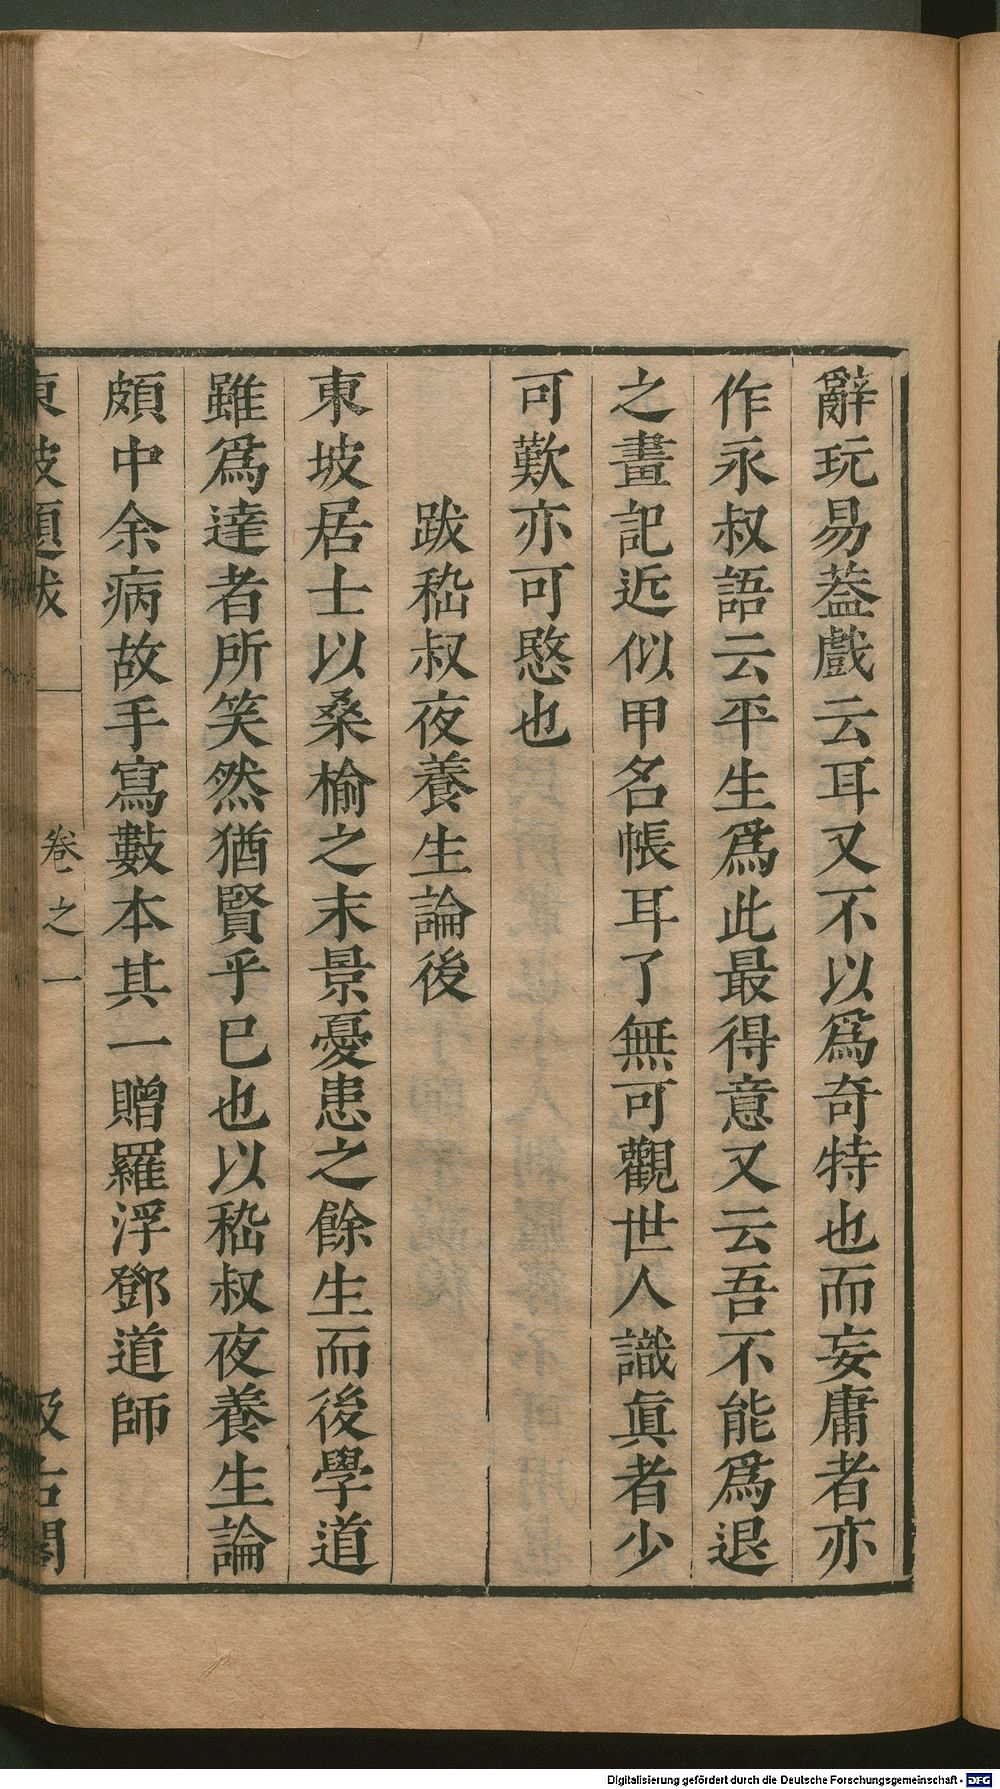 辭玩易葢戲云耳又不以爲奇特也而妄庸者亦
作永叔語云平生爲此最得意又云吾不能爲退
之畫記近似甲名帳耳了無可觀世人識眞者少
可歎亦可愍也
跋嵇叔夜養生論後
東坡居士以桑榆之末景憂患之餘生而後學道
雖爲達者所笑然猶賢乎巳也以嵇叔夜養生論
頗中余病故手寫數本其一贈羅浮鄧道師
東坡題跋 卷之一 汲古閣
Digitalisierung gefördert durch die Deutsche Forschungsgemeinschaft - DFG